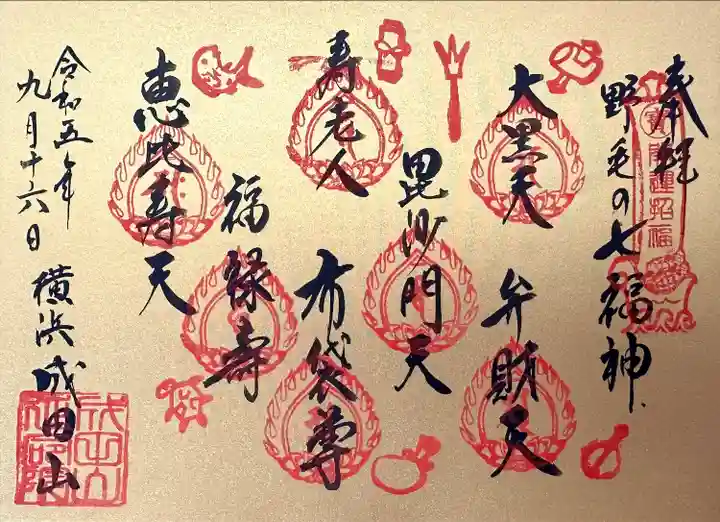 奉拝
野毛の七福神
大黒天
弁財天
毘沙門天
寿老人
布袋尊
福禄壽
恵比寿天
令和五年
九月十六日
横浜成田山
開運招福